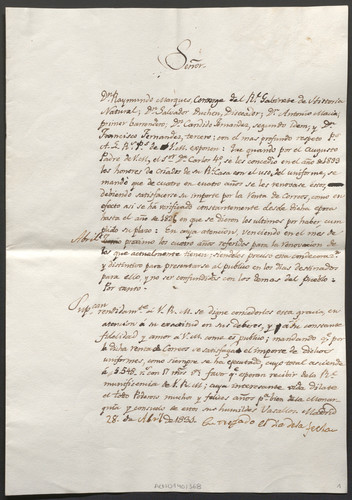 Señor.
Dn. Raymundo Marques, Conserge del Rl. Gabinete de Historia
Natural; Dn. Salvador Duchen, Disecador; Dn. Antonio
primer barrendero, Dn. Candido Fernandez, segundo idem; y Dn.
Francisco Fernandez, tercero; con el mas profundo respeto
A L. Rs. Ps. de V.M. exponen: Que quando por el Augusto
Padre de V.M., el Sr. Dn. Carlos 4º se les concedio en el año de
los honores de Criados de su Rl. Casa con el uso del uniforme, se
mandó que de cuatro en cuatro años se les renovase este,
debiendo satisfacerse su importe por la Renta de Correos, como en
efecto asi se ha verificado constantemente desde dicha época
hasta el año de en que se dieron los ultimos por haber cum-
plido su plazo: En cuya atencion, venciendo en el mes de
proximo los cuatro años referidos para la renovacion de
los que actualmente tienen; siendoles preciso esta condecorazn.
y distintivo para presentarse al publico en los dias destinados
para ello, y no ser confundidos con los demas del pueblo:
Por tanto:
Supcan. rendidamte. á V. R. M. se digne concederles esta gracia, en
atencion á su exactitud en sus deberes, y á su constante
fidelidad y amor á V.M. como es publico; mandando qe. por
la dicha renta de Correos se satisfaga el importe de dichos
uniformes, como siempre se ha ejecutado, cuyo total asciende
á 3.548. rs. con 17 mrs. favor qe. esperan recibir de la Rl.
munificencia de V. R. M.; cuya interesante vida dilate
el todo Poderoso muchos y felices años pa. bien de la Monar-
quia y consuelo de estos sus humildes Vasallos. Madrid
28. de Abril de